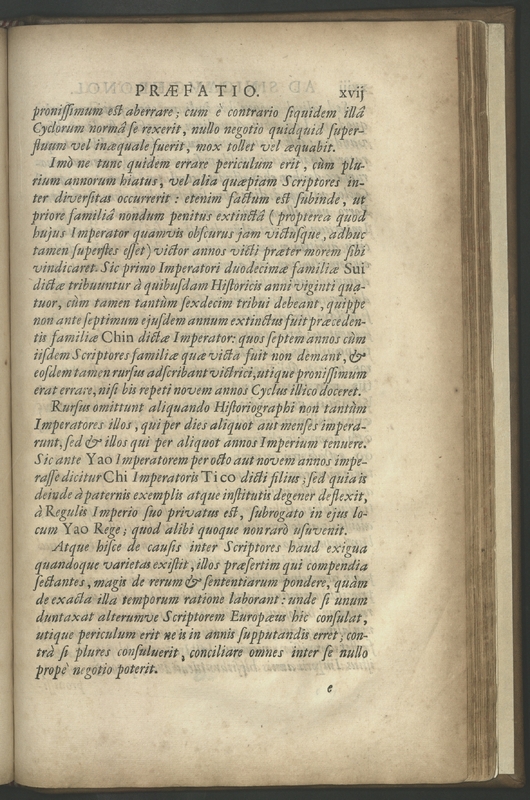 PRÆFATIO. xvij
pronissimum est aberrare; cum è contrario siquidem illâ
Cyclorum normâ se rexerit, nullo negotio quidquid super-
fluum vel inæquale fuerit, mox tollet vel æquabit.
Imò ne tunc quidem errare periculum erit, cùm plu-
rium annorum hiatus, vel alia quæpiam Scriptores in-
ter diversitas occurrerit: etenim factum est subinde, ut
priore familiâ nondum penitus extinctâ (propterea quod
hujus Imperator quamvis obscurus jam victusque, adhuc
tamen superstes esset) victor annos victi præter morem sibi
vindicaret. Sic primo Imperatori duodecimæ familiæ Sui
dictæ tribuuntur à quibusdam Historicis anni viginti qua-
tuor, cùm tamen tantùm sexdecim tribui debeant, quippe
non ante septimum ejusdem annum extinctus fuit præceden-
tis familiæ Chin dictæ Imperator: quos septem annos cùm
iisdem Scriptores familiæ quæ victa fuit non demant, &
eosdem tamen rursus adscribant victrici, utique pronissimum
erat errare, nisi bis repeti novem annos Cyclus illico doceret.
Rursus omittunt aliquando Historiographi non tantùm
Imperatores illos, qui per dies aliquot aut menses impera-
runt, sed & illos qui per aliquot annos Imperium tenuere.
Sic ante Yao Imperatorem per octo aut novem annos impe-
rasse dicitur Chi Imperatoris Tico dicti filius; sed quia is
deinde à paternis exemplis atque institutis degener deflexit,
à Regulis Imperio suo privatus est, subrogato in ejus lo-
cum Yao Rege; quod alibi quoque nonrarò usuvenit.
Atque hisce de causis inter Scriptores haud exigua
quandoque varietas existit, illos præsertim qui compendia
sectantes, magis de rerum & sententiarum pondere, quàm
de exacta illa temporum ratione laborant: unde si unum
duntaxat alterumve Scriptorem Europæus hic consulat,
utique periculum erit ne is in annis supputandis erret; con-
trà si plures consuluerit, conciliare omnes inter se nullo
propè negotio poterit.
e